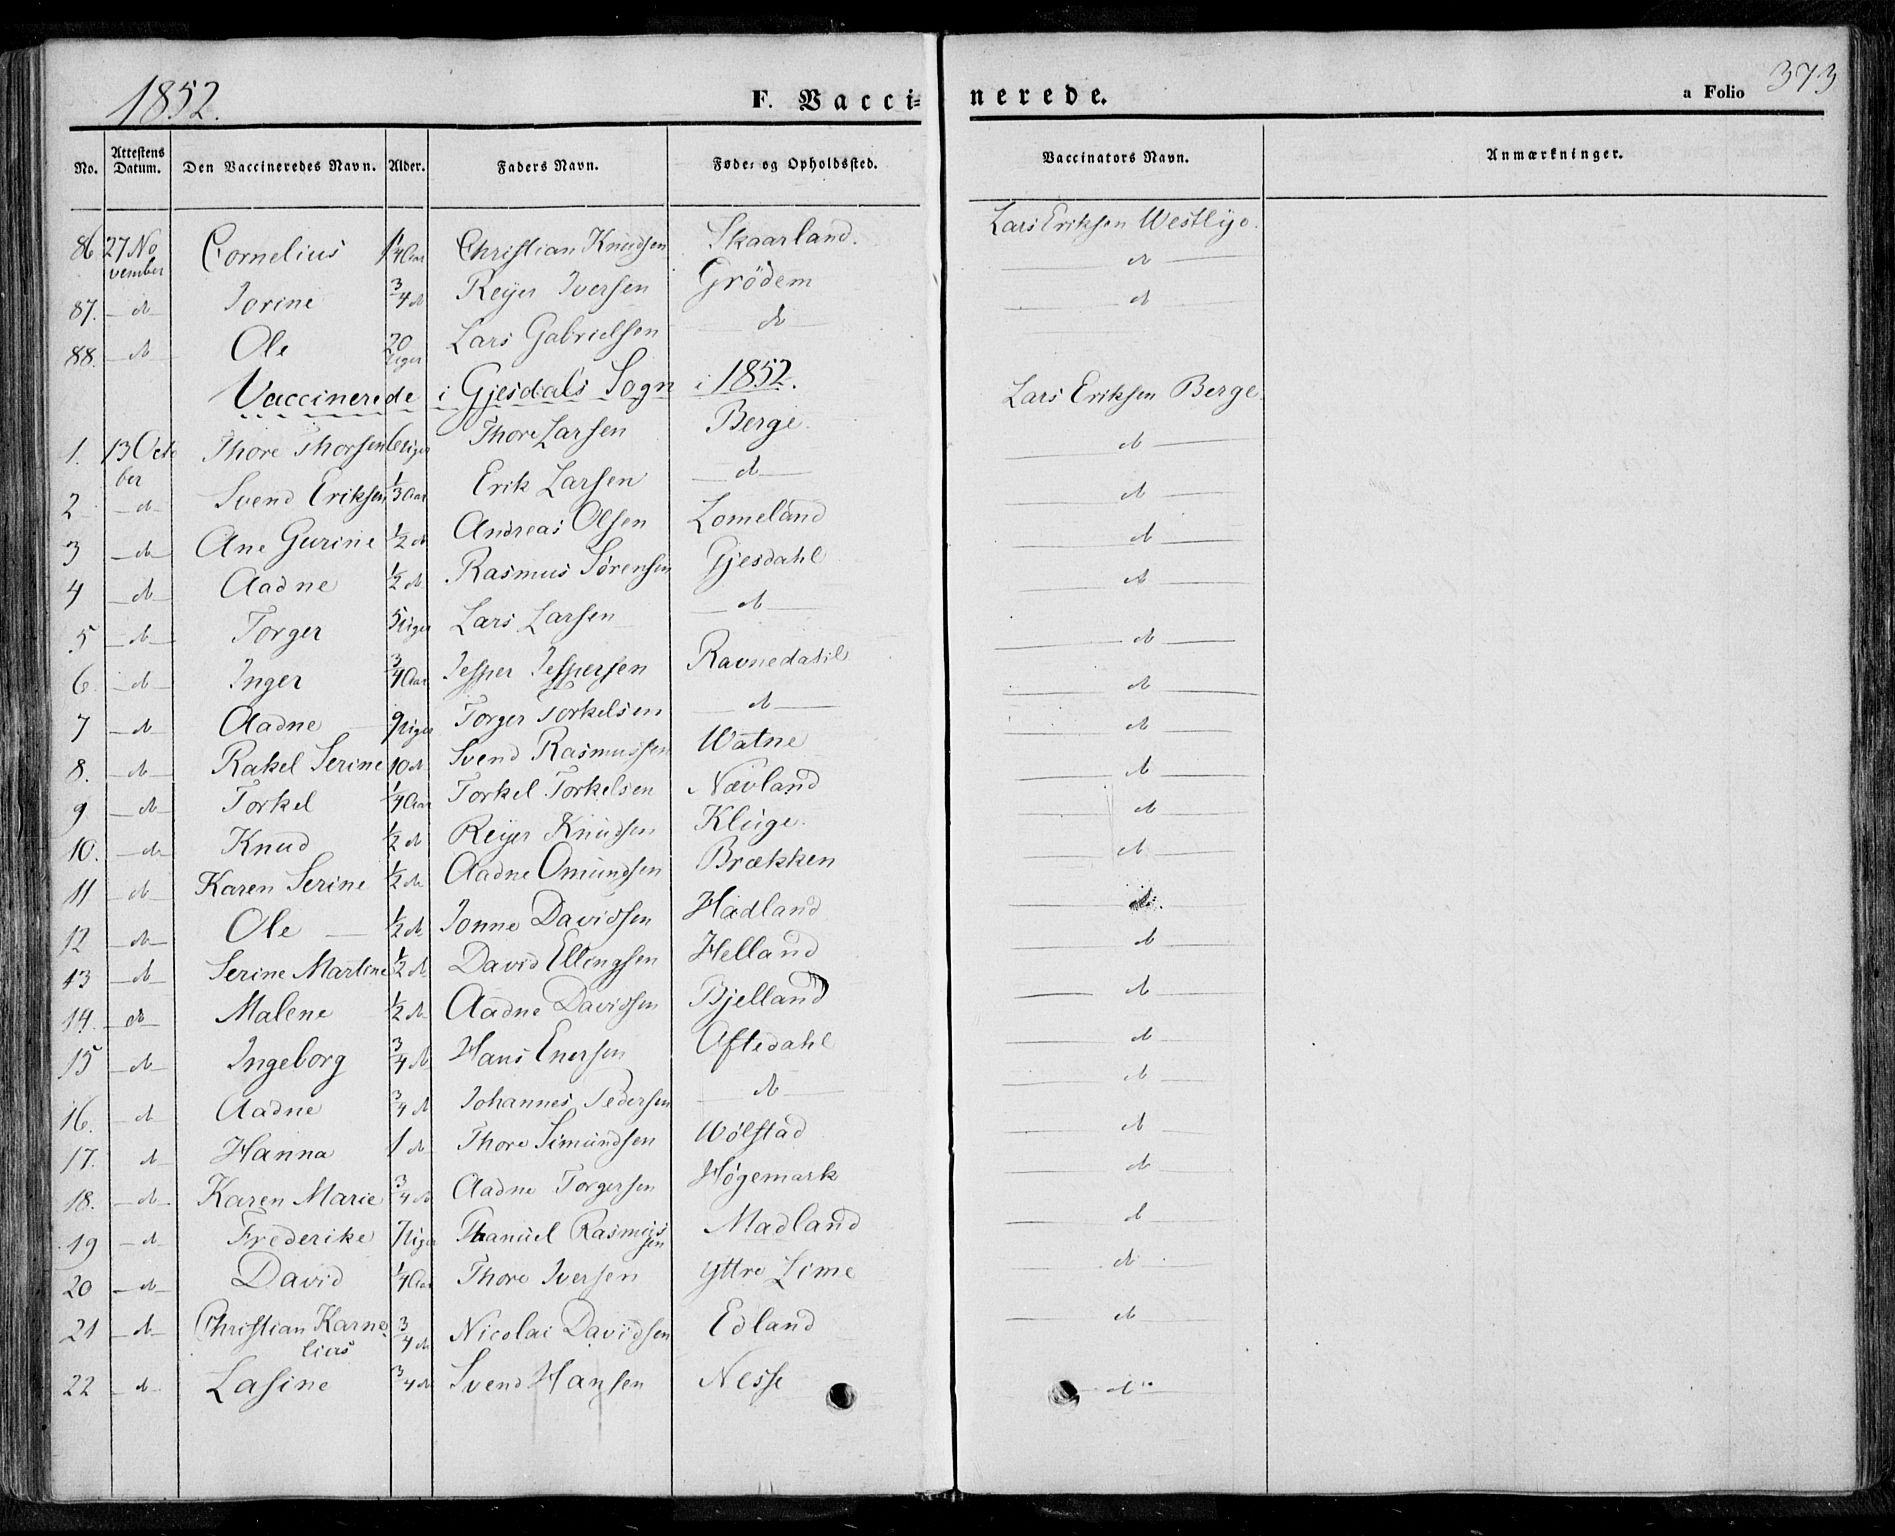 1852.
F. Vacci=
nerede.
a Folio 373
No. Attestens Datum. Den Vaccineredes Navn. Alder. Faders Navn. Føde= og Opholdssted. Vaccinators Navn. Anmærkninger.
86 27 No vember Cornelius 1/4 Aar Christian Knudsen Skaarland. Lars Eriksen Westlye.
87. d Jorine 3/4 d Reyer Iversen Grödem d
88. d Ole 20 Uger Lars Gabrielsen d d
Vaccinerede i Gjesdals Sogn i 1852.
1. 13 Octo ber Thore Thorsen 6 Uger Thore Larsen Berge. Lars Eriksen Berge.
2 d Svend Eriksen 1/3 Aar Erik Larsen d d
3 d Ane Gurine 1/2 d Andreas Olsen Lomeland d
4 d Aadne 1/2 d Rasmus Sørensen Gjesdahl d
5 d Torger 5 Uger Lars Larsen d d
6. d Inger 3/4 Aar Jesper Jespersen Ravnedahl d
7 d Aadne 9 Uger Torger Torkelsen d d
8. d Rakel Serine 10 d Svend Rasmussen Watne d
9 d Torkel 1/4 Aar Torkel Torkelsen Nævland d
10. d Knud 1/2 d Reyer Knudsen Kluge. d
11 d Karen Serine 1/2 d Aadne Omundsen Brækken d
12 d Ole 1/2 d Jonne Davidsen Hadland d
13 d Serine Martine 1/2 d David Ellingsen Helland d
14. d Malene 1/2 d Aadne Davidsen Bjelland d
15 d Ingeborg 3/4 d Hans Enersen Oftedahl d
16. d Aadne 3/4 d Johannes Pedersen d d
17. d Hanna 1 d Thore Simundsen Wølstad d
18. d Karen Marie 3/4 d Aadne Torgersen Høgemark d
19 d Frederike 7 Uger Thanuel Rasmus sen Madland d
20 d David 1/4 Aar Thore Iversen Yttre Lime d
21 d Christian Karne lius 3/4 d Nicolai Davidsen Edland d
22 d Lasine 3/4 d Svend Hansen Nesse d